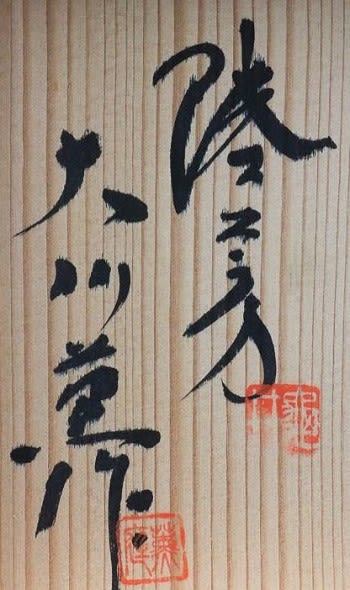 陸芳
大川薫作